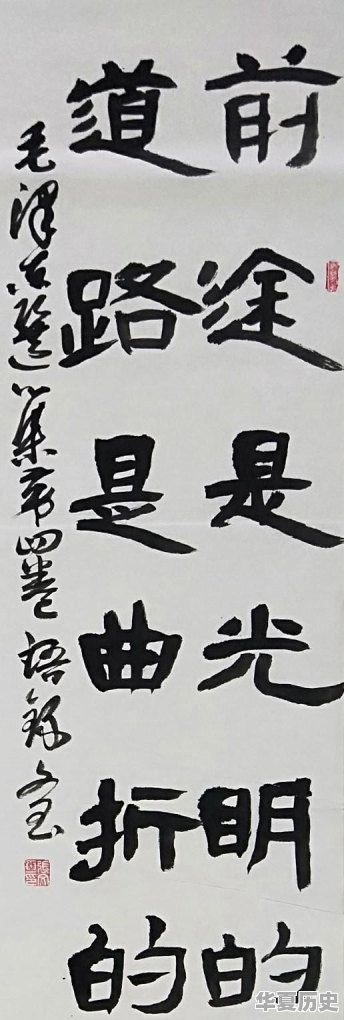 前途是光明的
道路是曲折的
毛泽东选集第四卷语录文玉
华夏历史